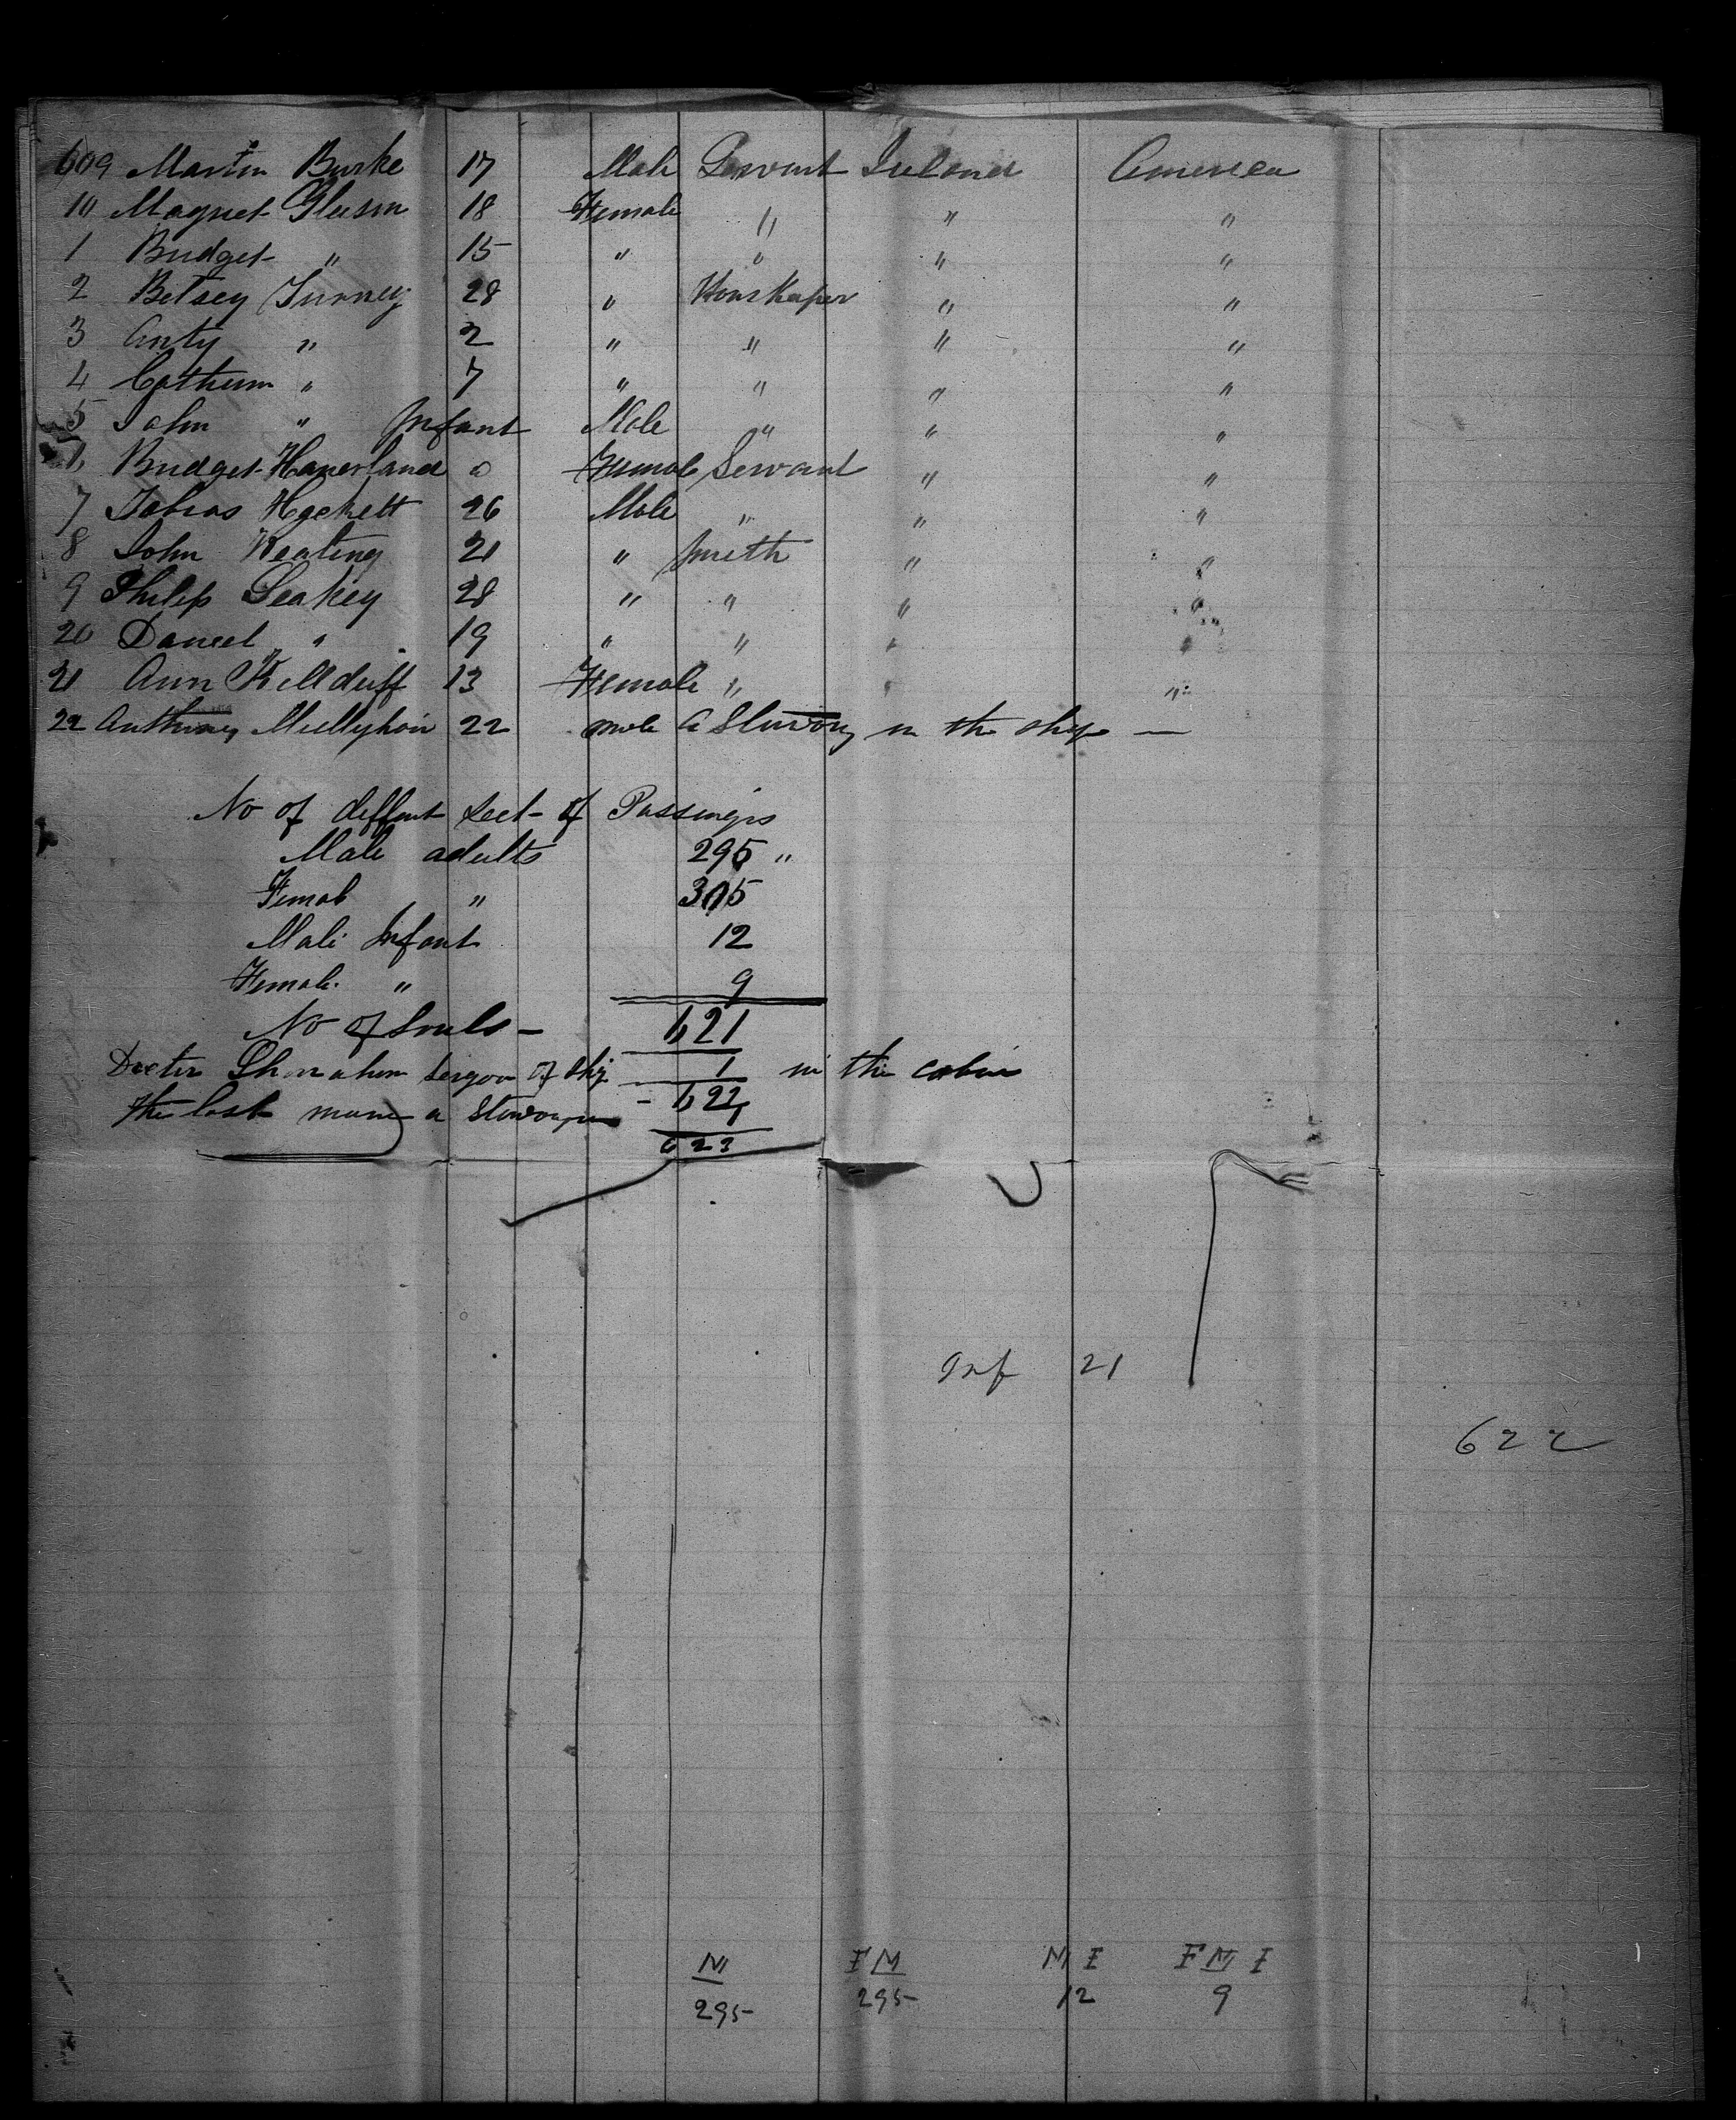 609 Martin Burke 17 Male Servant Ireland America
10 Magret Gleeson 18 Female " " "
1 Bridget " 15 " " " "
2 Betsey 28 " Hous Keeper " "
3 Anty " 2 " " " "
4 Cathern " 7 " " " "
5 John " Infant Male " " "
Bridget Female Servant " "
7 Tobias Hackett 26 Male " " "
8 John Keating 21 " Smith " "
9 Philip Leahey 28 " " " "
20 Daniel " 19 " " " "
21 Ann Killduff 13 Female " " "
22 Anthony 22 male a in the ship —
No of diffent Sect of Passingrs
Male adults 295 "
Femal " 305
Male Infant 12
Female " 9
No of Souls — 621
Docter of Ship 1 in the cabin
the last a 622
1
623
Inf 21
622
M FM M I F M I
295 295 12 9